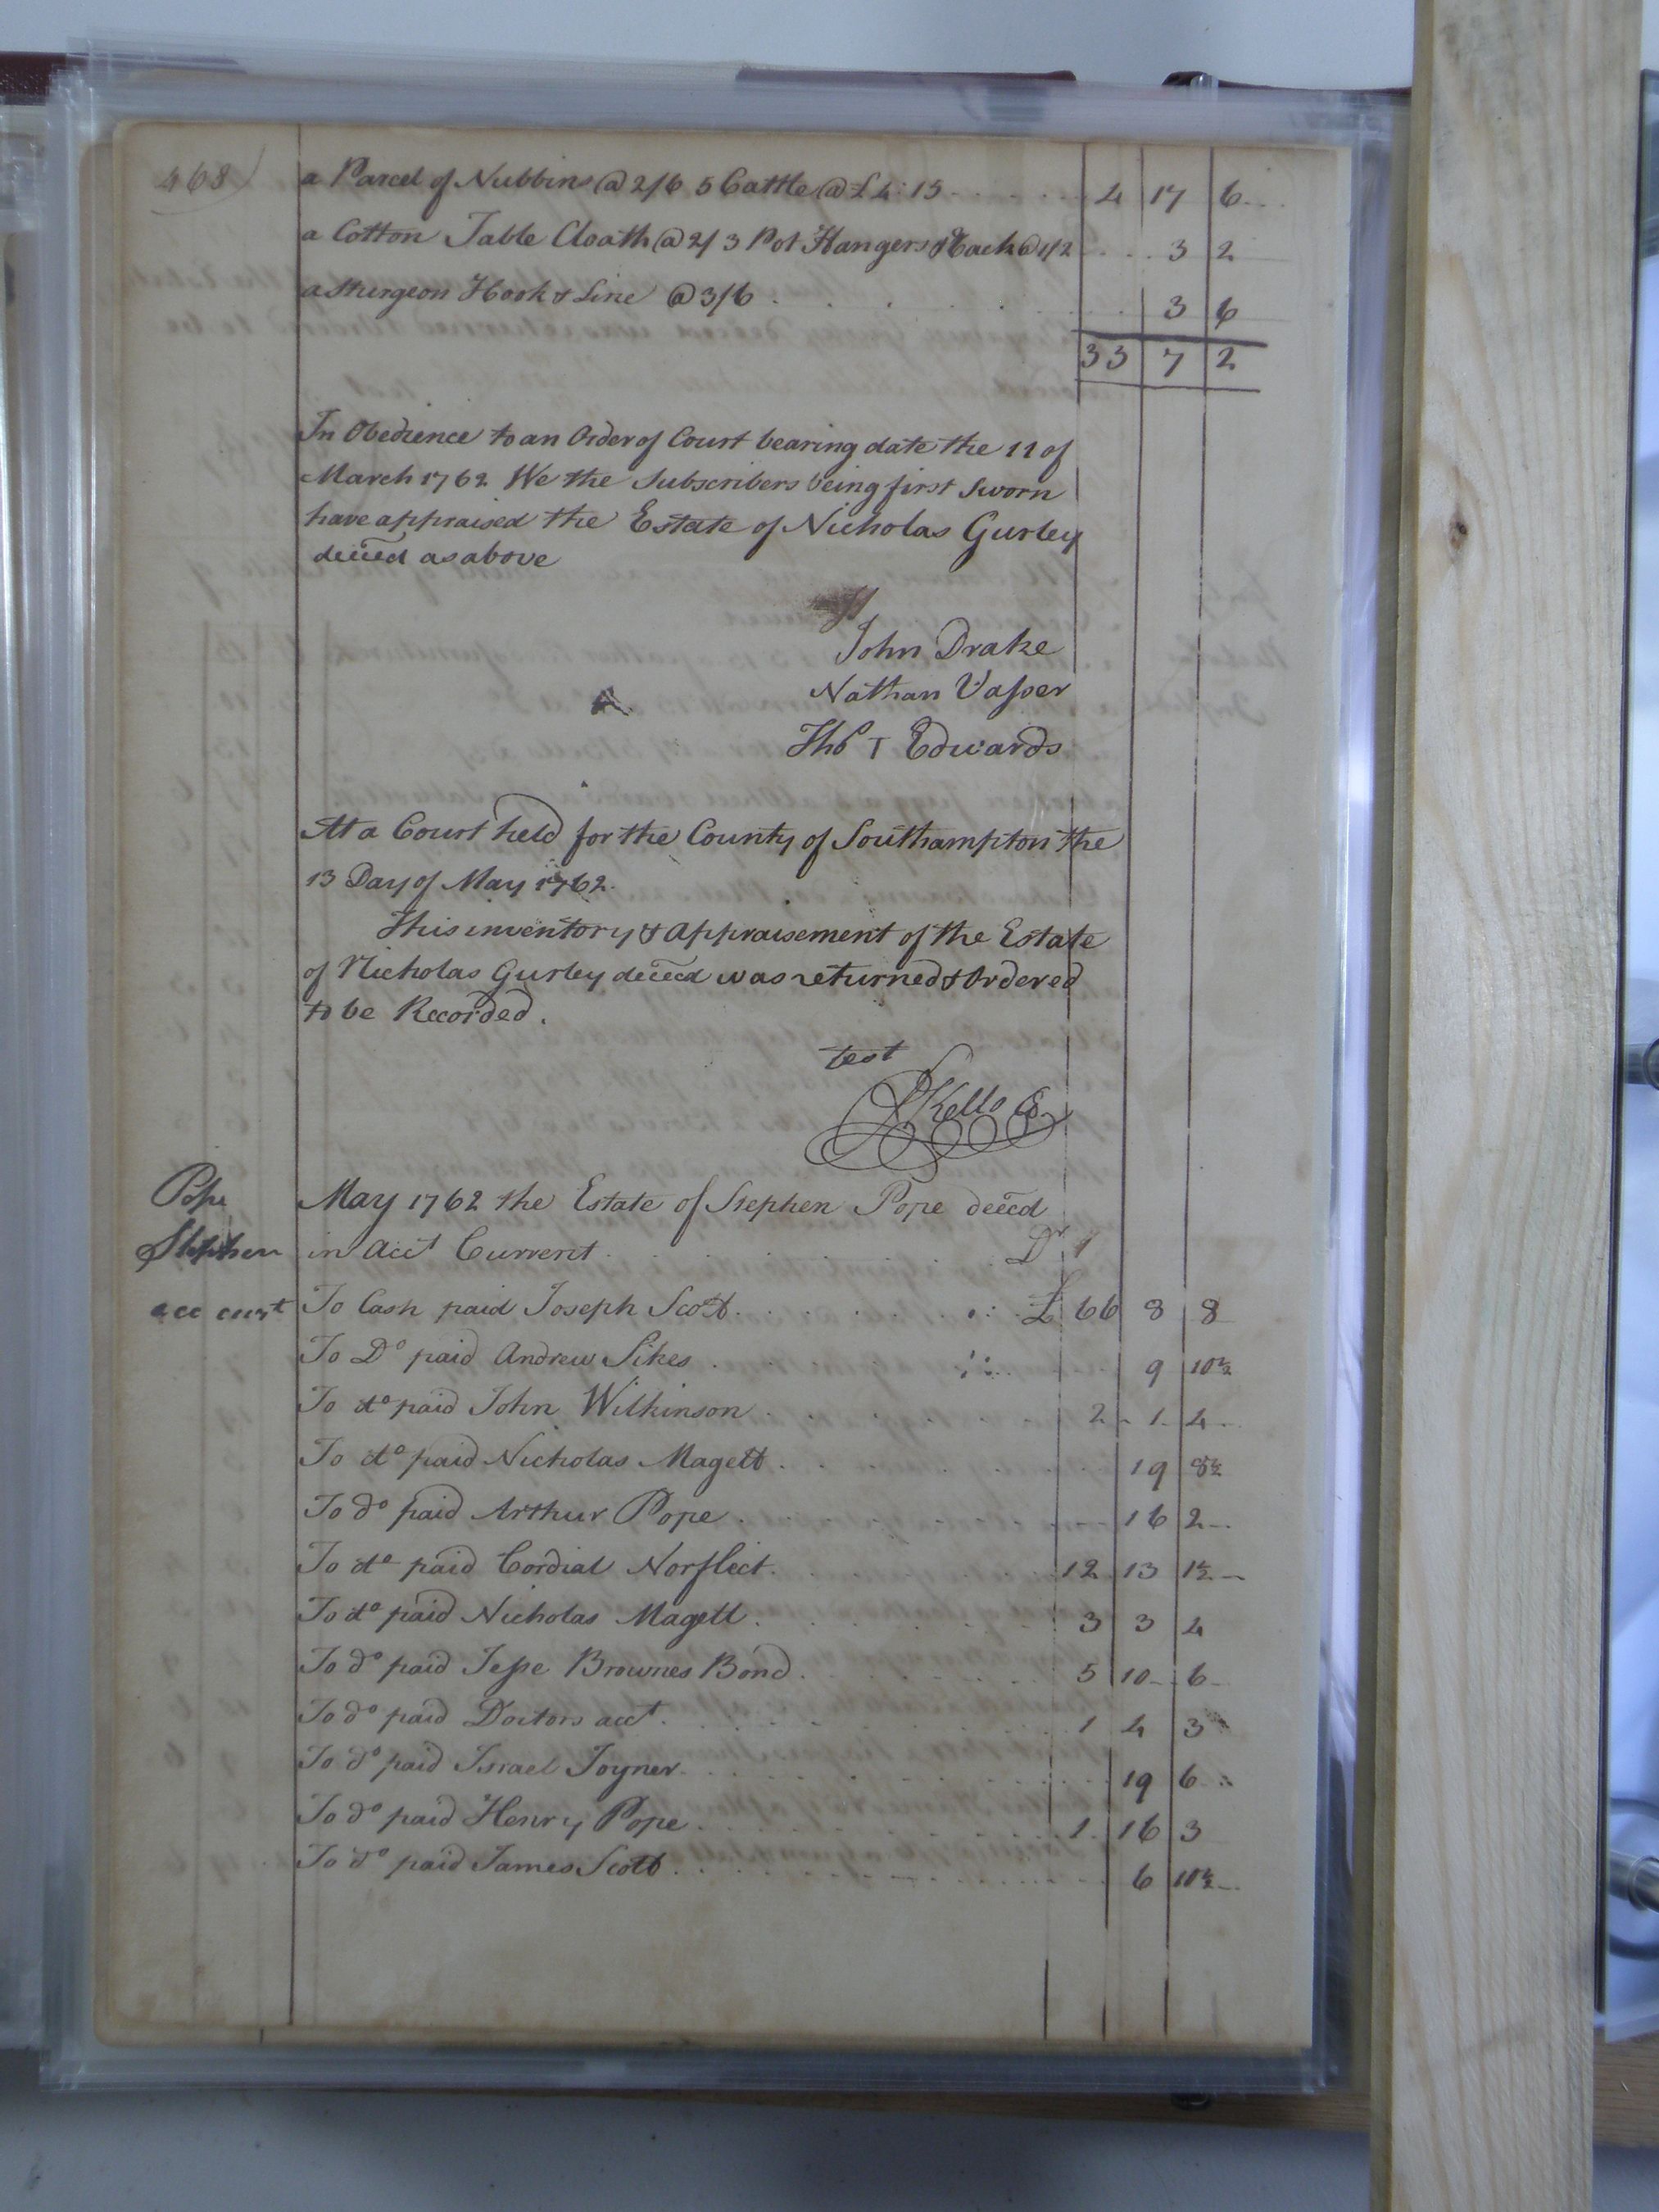 468)
a Parcel of Nubbins @ 2/6 5 Cattle @ £4:15 4 17 6
a Cotton Table Cloath @ 2/ 3 Pot Hangers & Rack @ 1/2 3 2
a Sturgeon Hook & Line @ 3/6 3 6
33 7 2
In Obedience to an Order of Court bearing date the 11 of
March 1762 We the Subscribers being first Sworn
have appraised the Estate of Nicholas Gurley
deced as above
John Drake
Nathan Vasser
Tho T Edwards
At a Court held for the County of Southampton the
13 Day of May 1762.
This inventory & Appraisement of the Estate
of Nicholas Gurley deceed was returned & Ordered
to be Recorded.
test
RKello C
Pope
Stephen
acc curt
May 1762 the Estate of Stephen Pope deced
in Acct Current Dr
To Cash paid Joseph Scott £ 66 8 8
To Do paid Andrew Sikes 9 10½
To do paid John Wilkinson 2 1 4
To do paid Nicholas Magett 19 8½
To do paid Arthur Pope 16 2
To do paid Cordial Norfleet 12 13 1½
To do paid Nicholas Magett 3 3 4
To do paid Jesse Brownes Bond 5 10 6
To do paid Doctors acct 1 4 3
To do paid Israel Joyner 19 6
To do paid Henry Pope 1 16 3
To do paid James Scott 6 10½